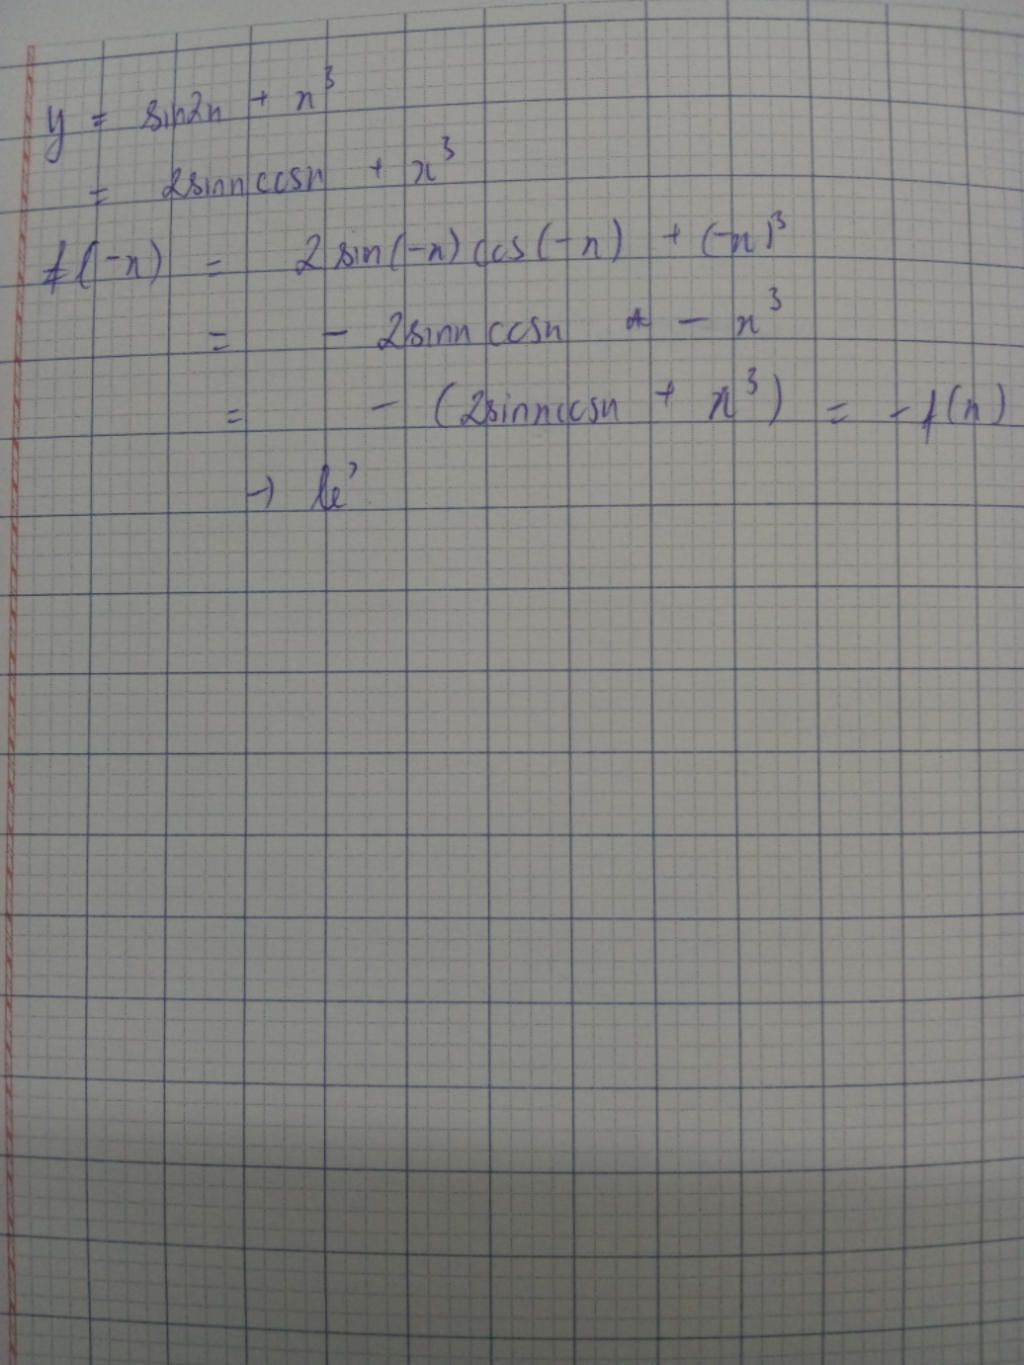 y = sin2x + x³
= 2sinxcosx + x³
f(-x) = 2sin(-x)cos(-x) + (-x)³
= - 2sinxcosx - x³
= - (2sinxcosx + x³) = -f(x)
→ lẻ